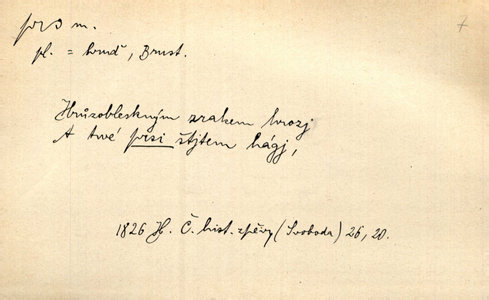 prs m.
pl. = hruď, Brust.
Hrůzobleskným zrakem hrozj
A twé prsi štjtem hágj,
1826 H. Č. hist. zpěvy (Svoboda) 26, 20.